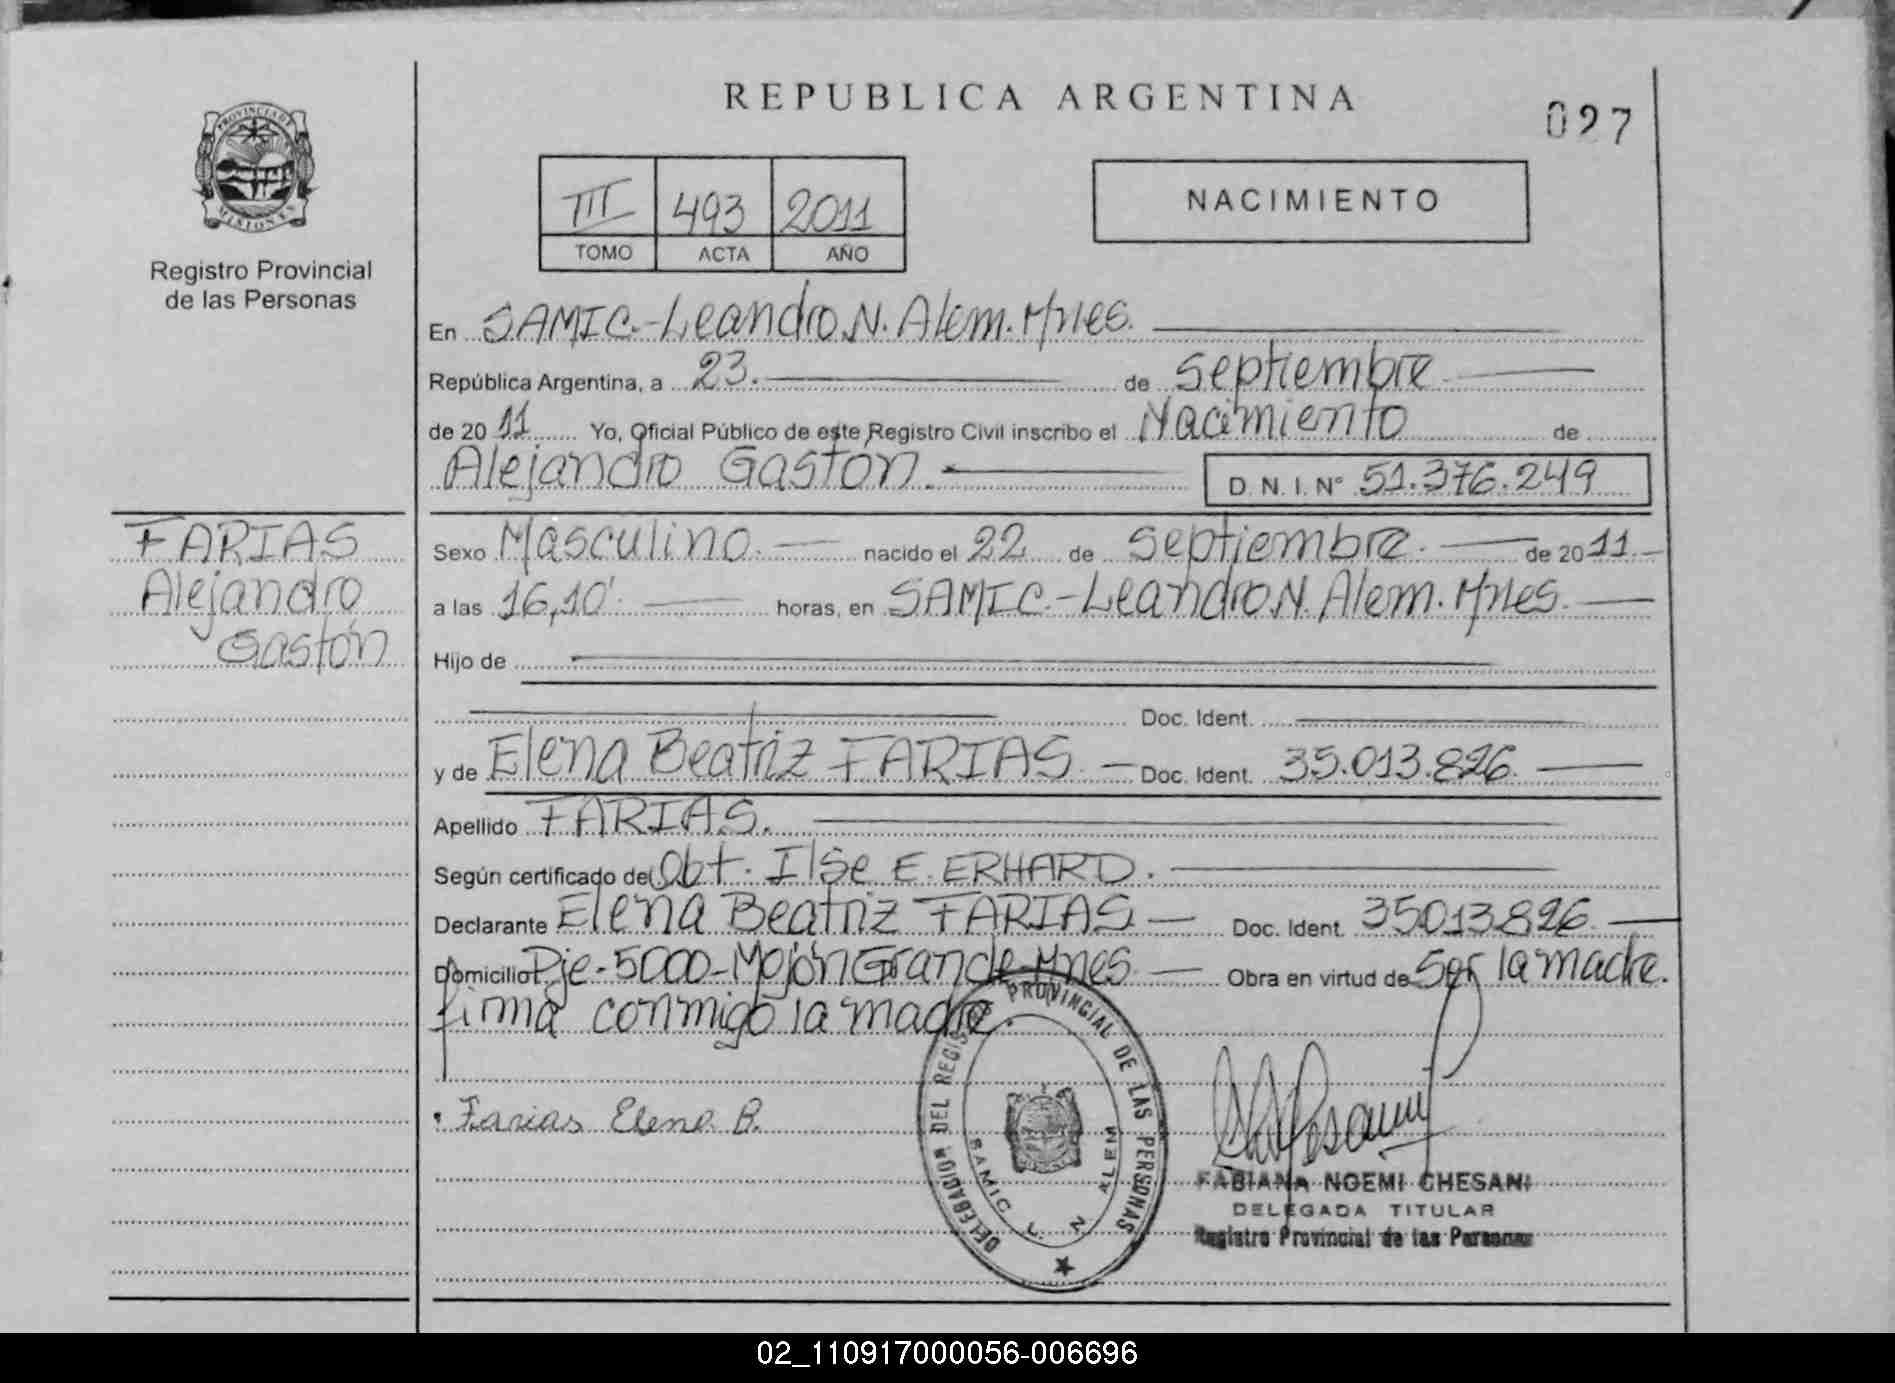 REPUBLICA ARGENTINA
027
PROVINCIA DE
MISIONES
Registro Provincial
de las Personas
III 493 2011
TOMO ACTA AÑO
NACIMIENTO
En SAMIC.-Leandro N. Alem. Mnes.
República Argentina, a 23. de Septiembre
de 2011 Yo, Oficial Público de este Registro Civil inscribo el Nacimiento de
Alejandro Gastón. D.N.I. N° 51.376.249
FARIAS
Alejandro
Gastón
Sexo Masculino. nacido el 22 de Septiembre. de 2011.
a las 16,10' horas, en SAMIC.-Leandro N. Alem. Mnes.
Hijo de
Doc. Ident.
y de Elena Beatriz FARIAS. Doc. Ident. 35.013.826.
Apellido FARIAS.
Según certificado de Obt. Ilse E. ERHARD.
Declarante Elena Beatriz FARIAS Doc. Ident. 35013826.
Domicilio Pje-5000-Mojón Grande-Mnes. Obra en virtud de Ser la madre.
firma conmigo la madre.
Farias Elena B.
DELEGACION DEL REGISTRO PROVINCIAL DE LAS PERSONAS
SAMIC L. N. ALEM
FABIANA NOEMI CHESANI
DELEGADA TITULAR
Registro Provincial de las Personas
02_110917000056-006696